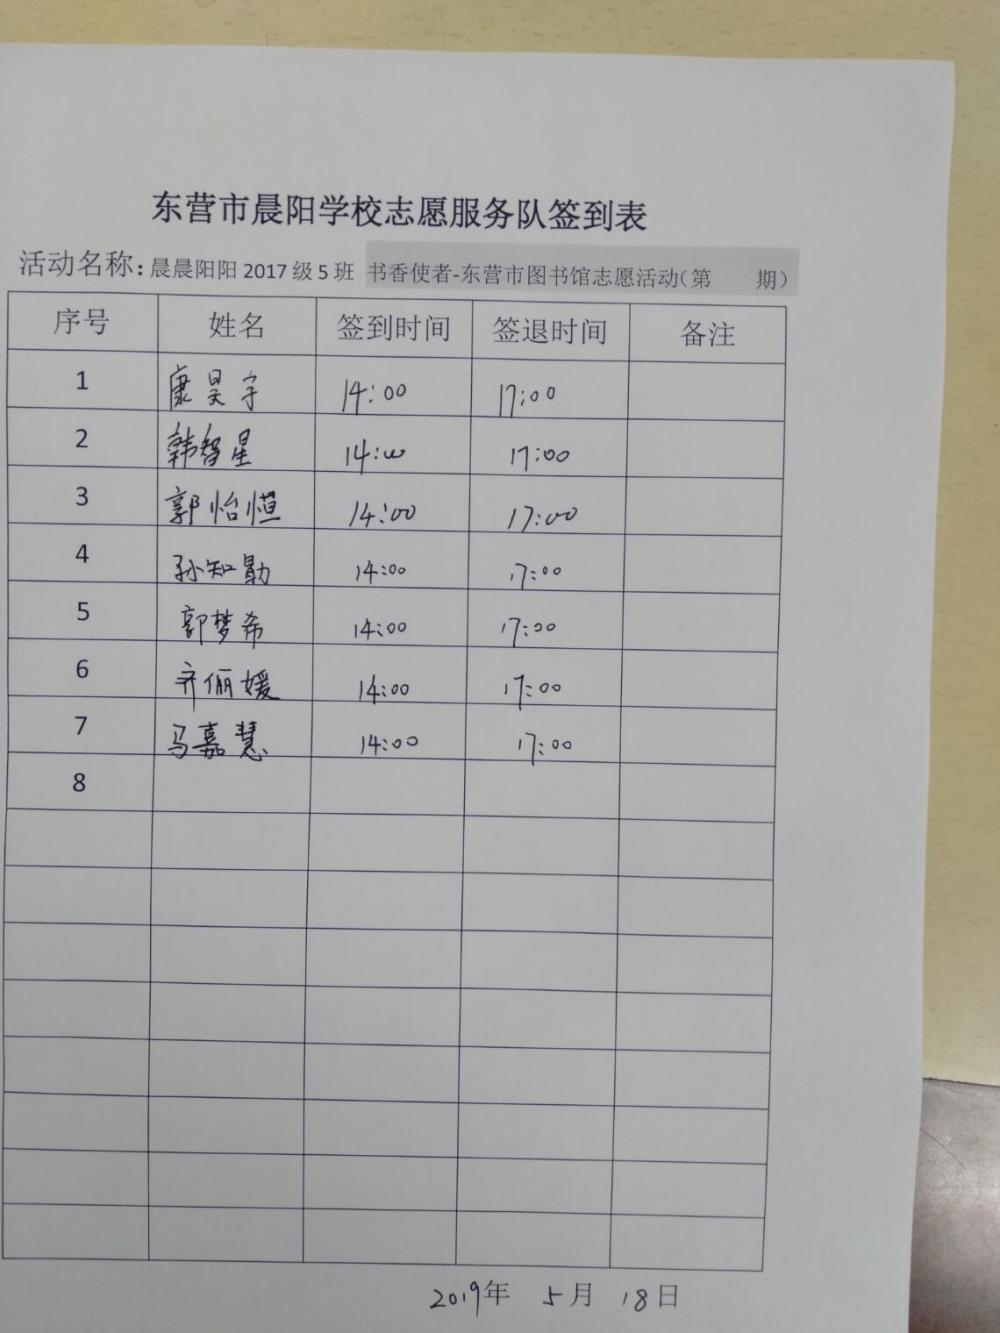 东营市晨阳学校志愿服务队签到表
活动名称:晨晨阳阳 2017 级 5 班 书香使者-东营市图书馆志愿活动(第 期)
序号 姓名 签到时间 签退时间 备注
1 康昊宇 14:00 17:00
2 韩智星 14:00 17:00
3 郭怡恒 14:00 17:00
4 孙知勖 14:00 17:00
5 郭梦希 14:00 17:00
6 齐俪媛 14:00 17:00
7 马嘉慧 14:00 17:00
8
2019年 5月 18日